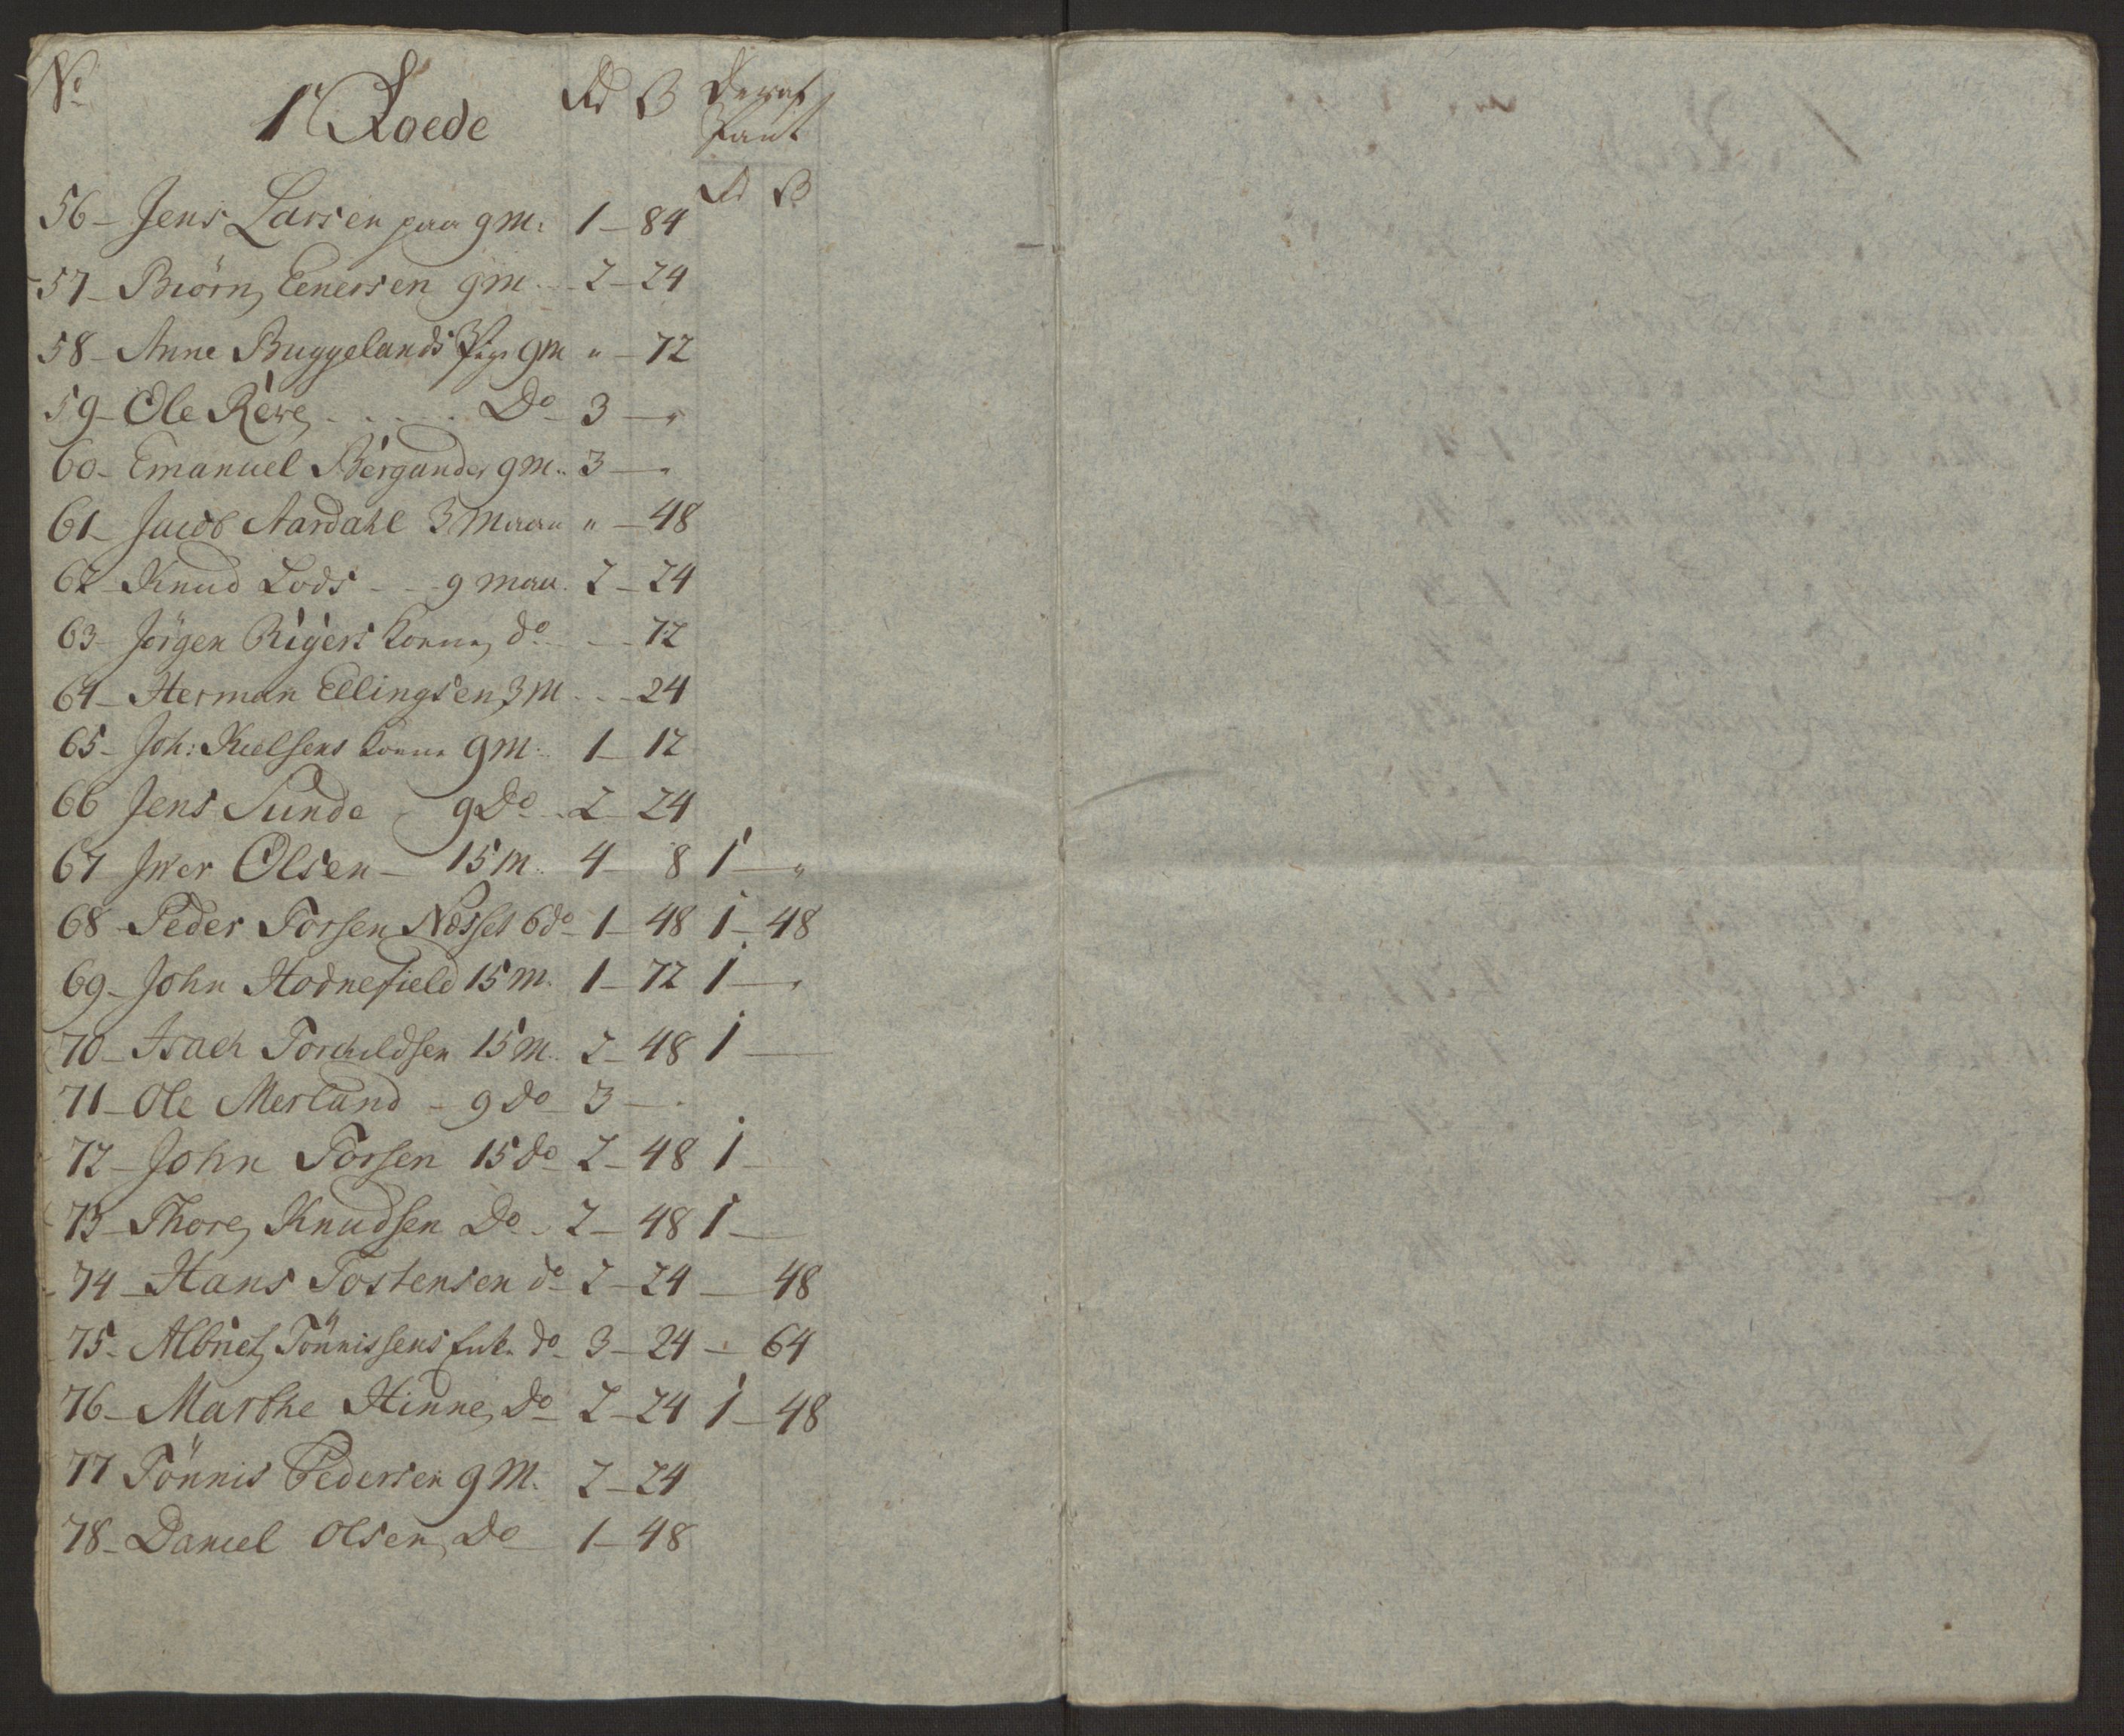 No 1 Roede Rd ß Deraf
Pant
Rd ß
56 - Jens Larsen paa 9 M: 1 - 84
57 - Biörn Eenersen 9 M .. 2 - 24
58 - Anne Buggelands 9 M " - 72
59 - Ole Rève . . . . . Do 3 - "
60 - Emanuel Bergander 9 M .. 3 - "
61 - Jacob Aardahl 3 Maan " - 48
62 - Knud Lods - - 9 maa . 2 - 24
63 - Jörgen Rigers Konne do .. - 72
64 - Herman Ellingsen 3 M . . - 24
65 - Joh: Kielsens Konne 9 M: 1 - 12
66 Jens Sunde 9 Do .. 2 - 24
67 - Iver Olsen - 15 M .. 4 - 8 1 - "
68 - Peder Torsen Nèsset 6 do - 1 - 48 1 - 48
69 - John Hodnefield 15 M. 1 - 72 1 - "
70 - Isach Torchildsen 15 M .. 2 - 48 1 -
71 - Ole Merland - 9 do - 3 - "
72 - John Torsen 15 do - 2 - 48 1 -
73 - Thore Knudsen Do .. 2 - 48 1 -
74 - Hans Tostensen do - 2 - 24 - 48
75 - Albriet Tönnissens Enk. do - 3 - 24 - 64
76 - Marthe Hinne, Do - 2 - 24 1 - 48
77 Tönnis Pedersen 9 M. 2 - 24
78 - Daniel Olsen, Do - 1 - 48